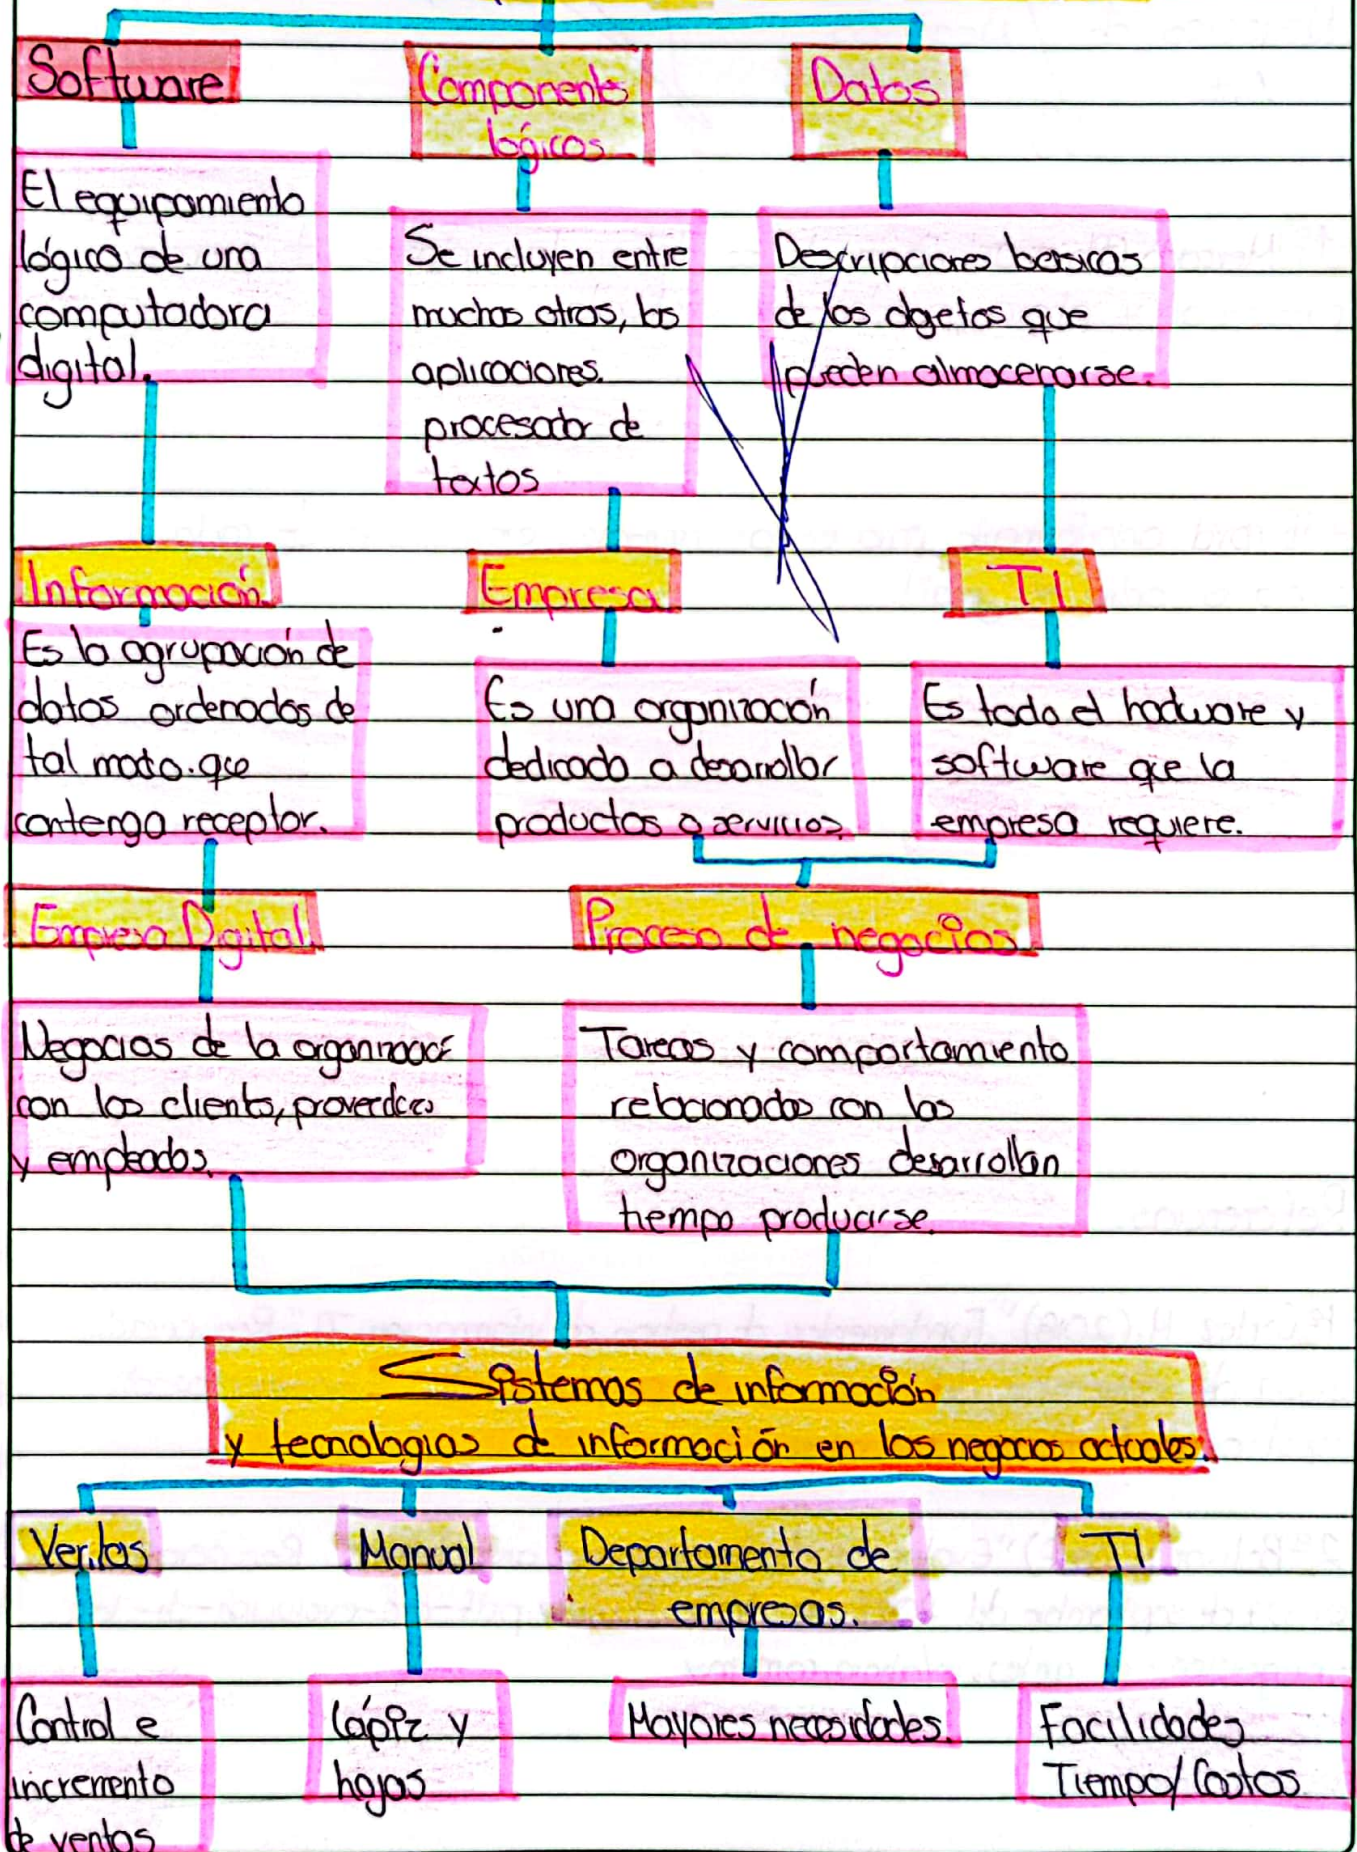 Software
El equipamiento
lógico de una
computadora
digital.
Componentes
lógicos
Se incluyen entre
muchos otros, los
aplicaciones.
procesador de
textos
Datos
Descripciones basicas
de los objetos que
pueden almacenarse.
Información
Es la agrupación de
datos ordenados de
tal modo que
contenga receptor.
Empresa
Es una organización
dedicado a desarrollar
productos o servicios.
TI
Es todo el hadware y
software que la
empresa requiere.
Empresa Digital
Negocios de la
con los clients,
y empleados.
Proceso de negocios
Tareas y comportamiento
relacionados con las
organizaciones desarrollan
tiempo producirse.
Sistemas de información
y tecnologias de información en los negocios actuales.
Ventas
Control e
incremento
de ventas
Manual
Lápiz y
hojas
Departamento de
empresas.
Mayores necesidades.
TI
Facilidades
Tiempo/Costos